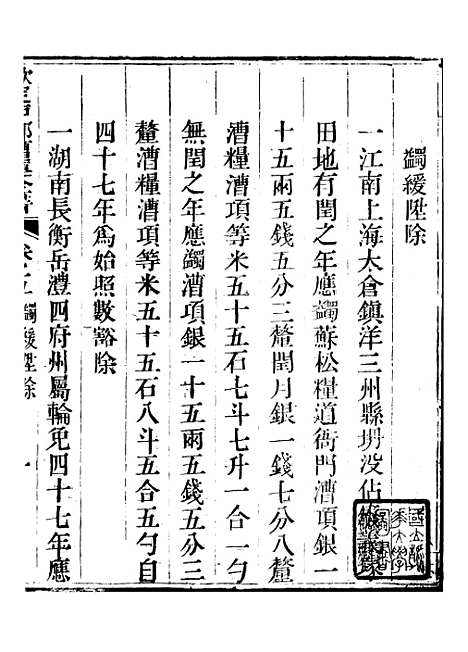 蠲緩陞除
一江南上海太倉鎮洋三州縣坍没佔
田地有閏之年應蠲蘇松糧道衙門漕項銀一
十五兩五錢五分三釐閏月銀一錢七分八釐
漕糧漕項等米五十五石七斗七升一合一勺
無閏之年應蠲漕項銀一十五兩五錢五分三
釐漕糧漕項等米五十五石八斗五合五勺自
四十七年爲始照數豁除
一湖南長衡岳澧四府州屬輪免四十七年應
蠲緩陞除